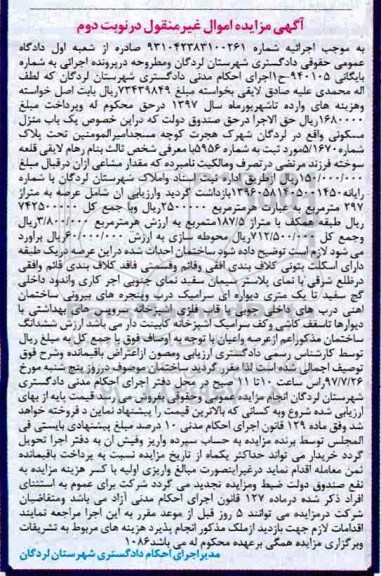 آگهی مزایده اموال غیرمنقول درنوبت دوم
به موجب اجرائیه شماره ۹۳۱۰۴۲۳۸۳۱۰۰۲۶۱ صادره از شعبه اول دادگاه
عمومی حقوقی دادگستری شهرستان لردگان ومطروحه درپرونده اجرائی به شماره
بایگانی ۹۴۰۱۰۵-ح۱اجرای احکام مدنی دادگستری شهرستان لردگان که لطف
اله محمدی علیه صادق لایقی بخواسته مبلغ ۷۳۴۳۹۸۴۹ریال بابت اصل خواسته
وهزینه های وارده تاشهریورماه سال ۱۳۹۷ درحق محکوم له وپرداخت مبلغ
۱۶۸۰۰۰۰ریال حق الاجرا درحق صندوق دولت که دراین خصوص یک باب منزل
مسکونی واقع در لردگان شهرک هجرت کوچه مسجدامیرالمومنین تحت پلاک
شماره ۵/۱۶۷۰مورد ثبت به شماره ۵۹۵۶با معرفی شخص ثالث بنام رهام لایقی قلعه
سوخته فرزند مرتضی درتصرف ومالکیت نامبرده که مقدار مشاعی ازان درقبال مبلغ
۱۵۰/۰۰۰/۰۰۰ریال ازطریق اداره ثبت اسناد واملاک شهرستان لردگان با شماره
رایانه ۱۳۹۶۰۵۸۱۴۰۵۰۰۱۴۵۰بازداشت گردید وارزیابی ان شامل عرصه به متراژ
۲۹۷ مترمربع که عبارت هرمترمربع ۲۵۰۰۰۰۰ریال وبا جمع کل ۷۴۲۵۰۰۰۰۰
ریال طبقه همکف با متراژ ۱۸۷/۵مترمربع به ارزش هرمترمربع ۳/۸۰۰/۰۰۰ریال
وجمع کل ۷۱۲/۵۰۰/۰۰۰ریال محوطه سازی به ارزش ۶۰/۰۰۰/۰۰۰ریال براورد
می شود لازم است توضیح داده شود ساختمان احداث شده دراین عرصه دریک طبقه
دارای اسکلت بتونی کلاف بندی افقی وقائم وقسمتی فاقد کلاف بندی قائم وافقی
درظلع شرقی با نمای پلاستر سیمان سفید نمای جنوبی اجر کاری واندود داخلی
گچ سفید تا یک متری دیواره ای سرامیک درب وپنجره های بیرونی ساختمان
اهنی درب های داخلی چوبی با قاب فلزی اشپزخانه سرویس های بهداشتی با
دیوارها تاسقف کاشی وکف سرامیک اشپزخانه کابینت دار می باشد ارزش ششدانگ
ساختمان مذکوراعم ازعرصه واعیان با توجه به اوصاف فوق با جمع کل به مبلغ ریال
توسط کارشناس رسمی دادگستری ارزیابی ومصون ازاعتراض باقیمانده وشرح فوق
توصیف اجمالی شده است لذا مقرر گردید ساختمان موصوف درروز پنج شنبه مورخ
۹۷/۷/۲۶راس ساعت ۱۰تا ۱۱ صبح در محل دفتر اجرای احکام مدنی دادگستری
شهرستان لردگان انجام مزایده عمومی وحقوقی بفروش می رسد قیمت پایه از بهای
ارزیابی شده شروع وبه کسانی که بالاترین قیمت را پیشنهاد نماین د فروخته خواهد
شد وفق ماده ۱۲۹ قانون اجرای احکام مدنی ۱۰ درصد مبلغ پیشنهادی بایستی فی
المجلس توسط برنده مزایده به حساب سپرده واریز وفیش ان به دفتر اجرا تحویل
گردد خریدار می تواند حداکثر یکماه از تاریخ مزایده نسبت به پرداخت باقیمانده
ثمن معامله اقدام نماید درغیراینصورت مبالغ واریزی اولیه با کسر هزینه مزایده به
نفع صندوق دولت ضبط ومزایده تجدید می گردد شرکت برای عموم به استثنای
افراد ذکر شده درماده ۱۲۷ قانون اجرای احکام مدنی آزاد می باشد ومتقاضیان
شرکت درمزایده می توانند ۵ روز قبل از موعد مقرر به این اجرا مراجعه نمایند
اقدامات لازم جهت بازدید ازملک مذکور انجام پذیرد هزینه های مربوط به تشریفات
وبرگزاری مزایده همگی برعهده محکوم له می باشد۱۰۸۶
مدیراجرای احکام دادگستری شهرستان لردگان